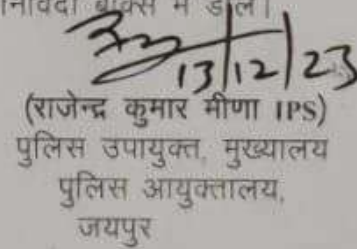 बॉक्स में डालें।
13/12/23
(राजेन्द्र कुमार मीणा IPS)
पुलिस उपायुक्त, मुख्यालय
पुलिस आयुक्तालय,
जयपुर